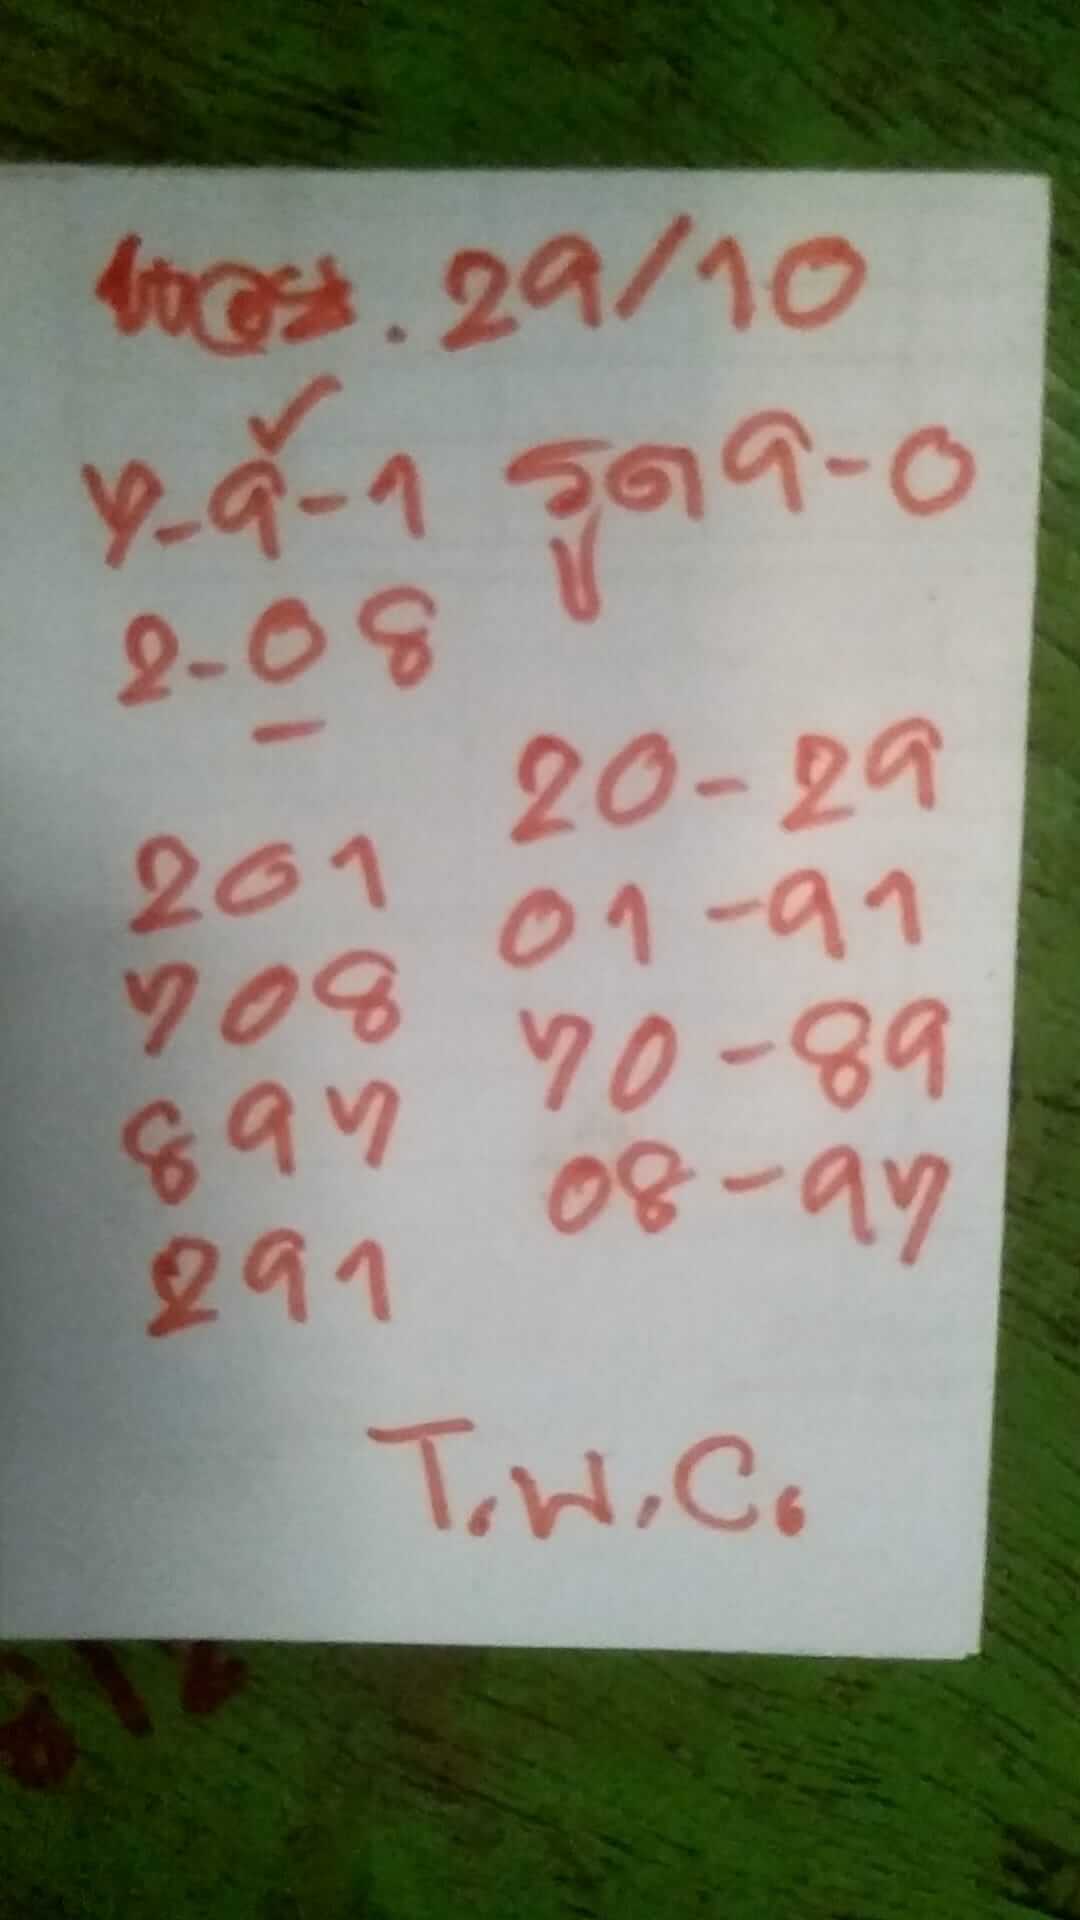 . 29/10
7-9-1 รูด 9-0
2-08
20-29
201
01-91
708
70-89
897
08-97
291
T.W.C.